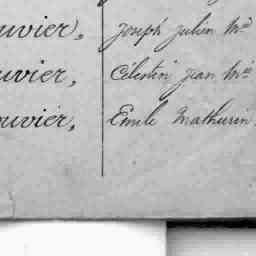 ouvier, Joseph Julien Md
ouvier, Célestin Jean Mie
ouvier, Emile Mathurin